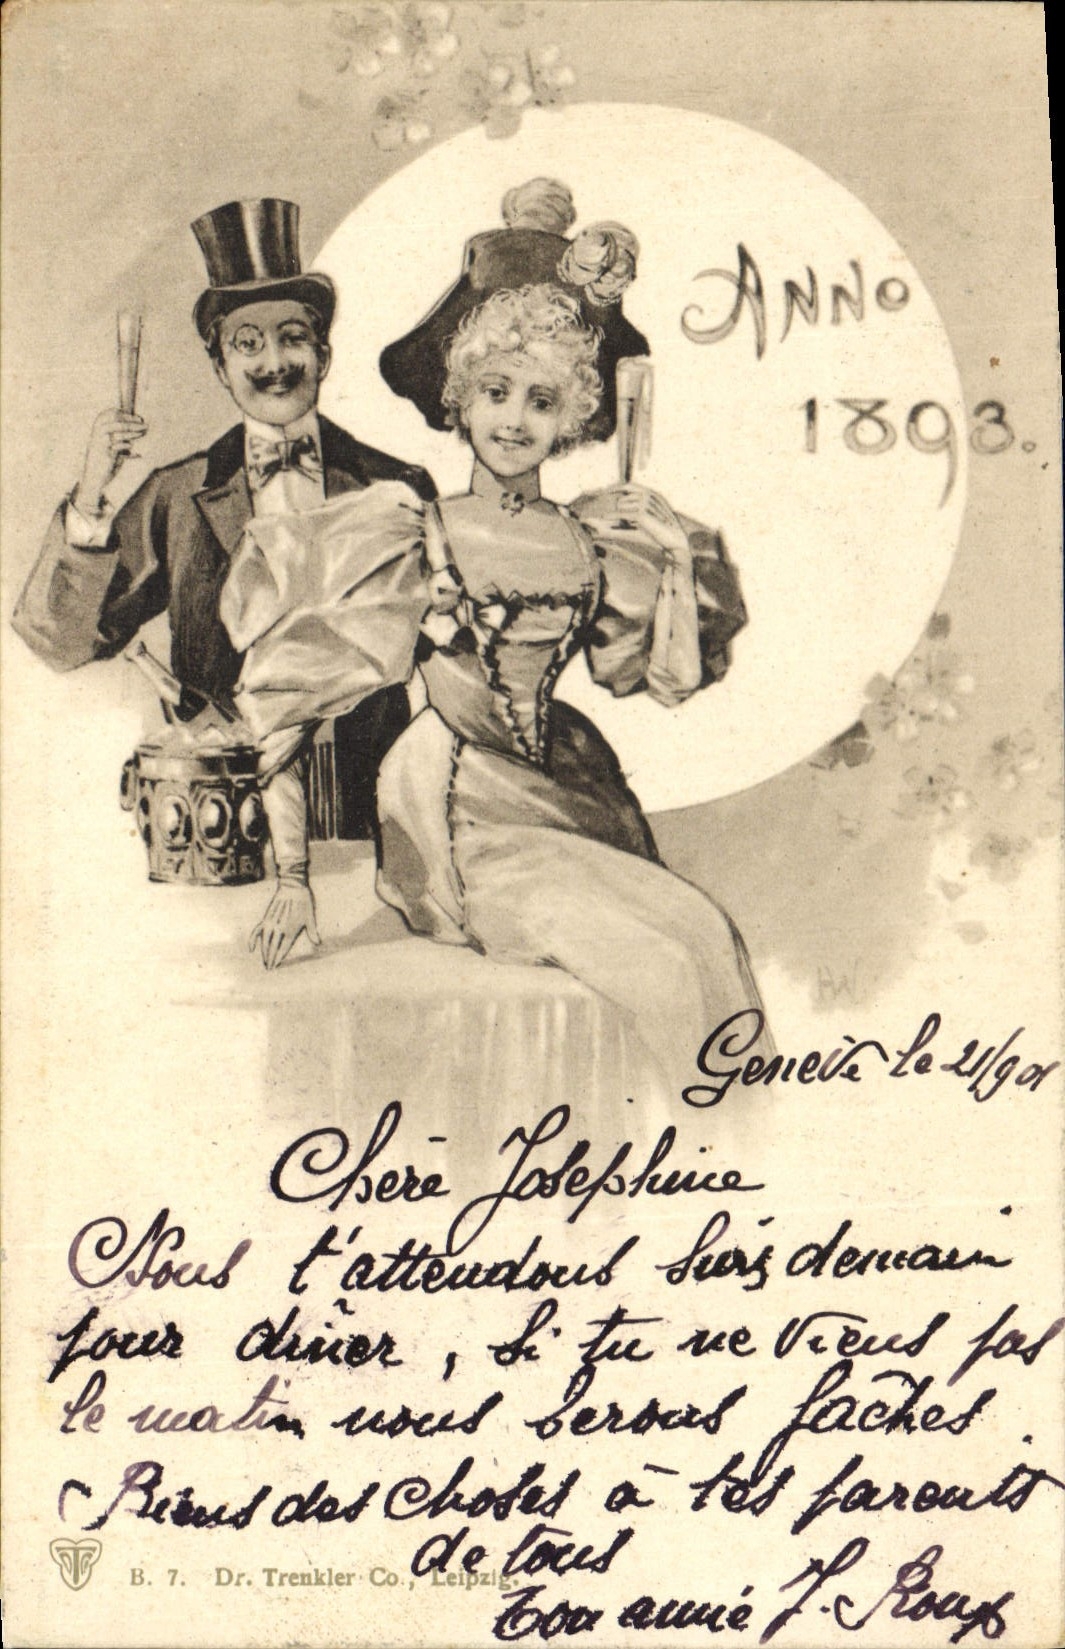 ANNO
1893.
Genève le 21/9 01
Chère Josephine
Nous t'attendons demain
pour dîner, si tu ne viens pas
le matin nous serons fâchés.
Biens des choses à tes parents
de tous
B. 7. Dr. Trenkler Co., Leipzig.
Ton amie J. Roux